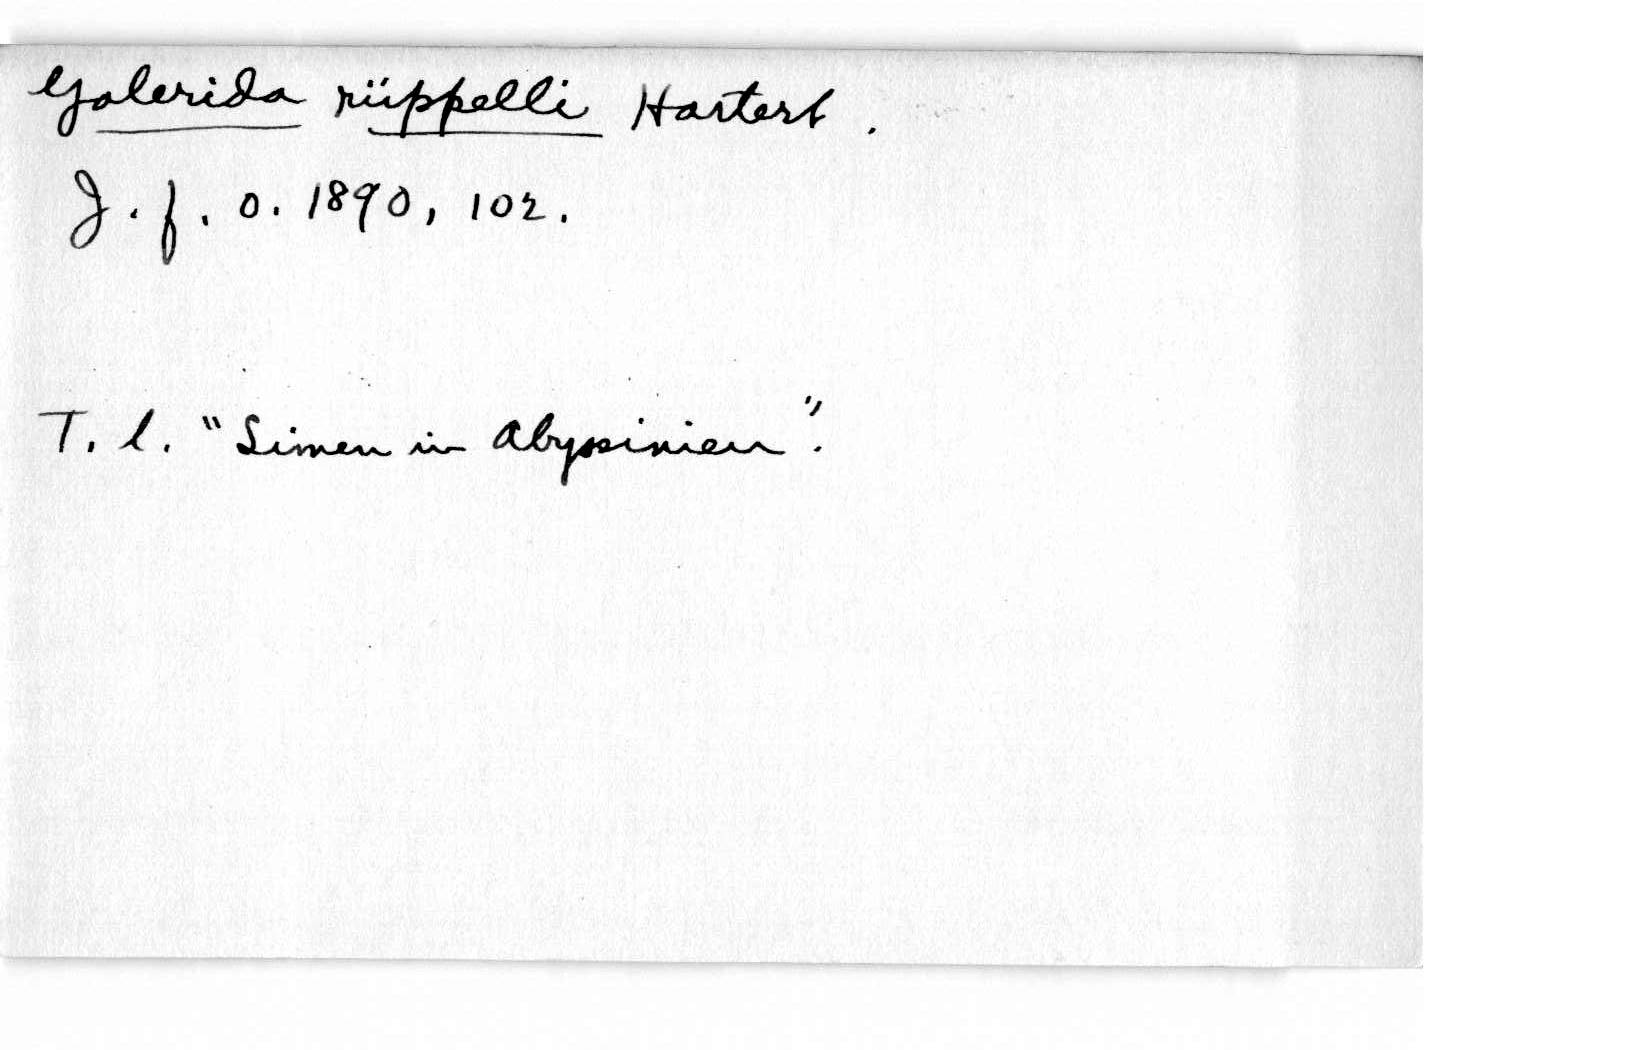 Galerida rüppelli Hartert.
J. f. O. 1890, 102.
T. l. "Simen in Abyssinien".